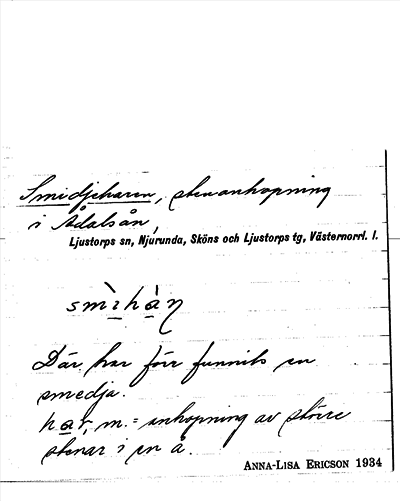 Smidjeharen, stenanhopning
i Ådalsån,
Ljustorps sn, Njurunda, Sköns och Ljustorps tg, Västernorrl. l.
smìhàṇ
Där har förr funnits en
smedja.
har, m. = anhopning av större
stenar i en å.
ANNA-LISA ERICSON 1934